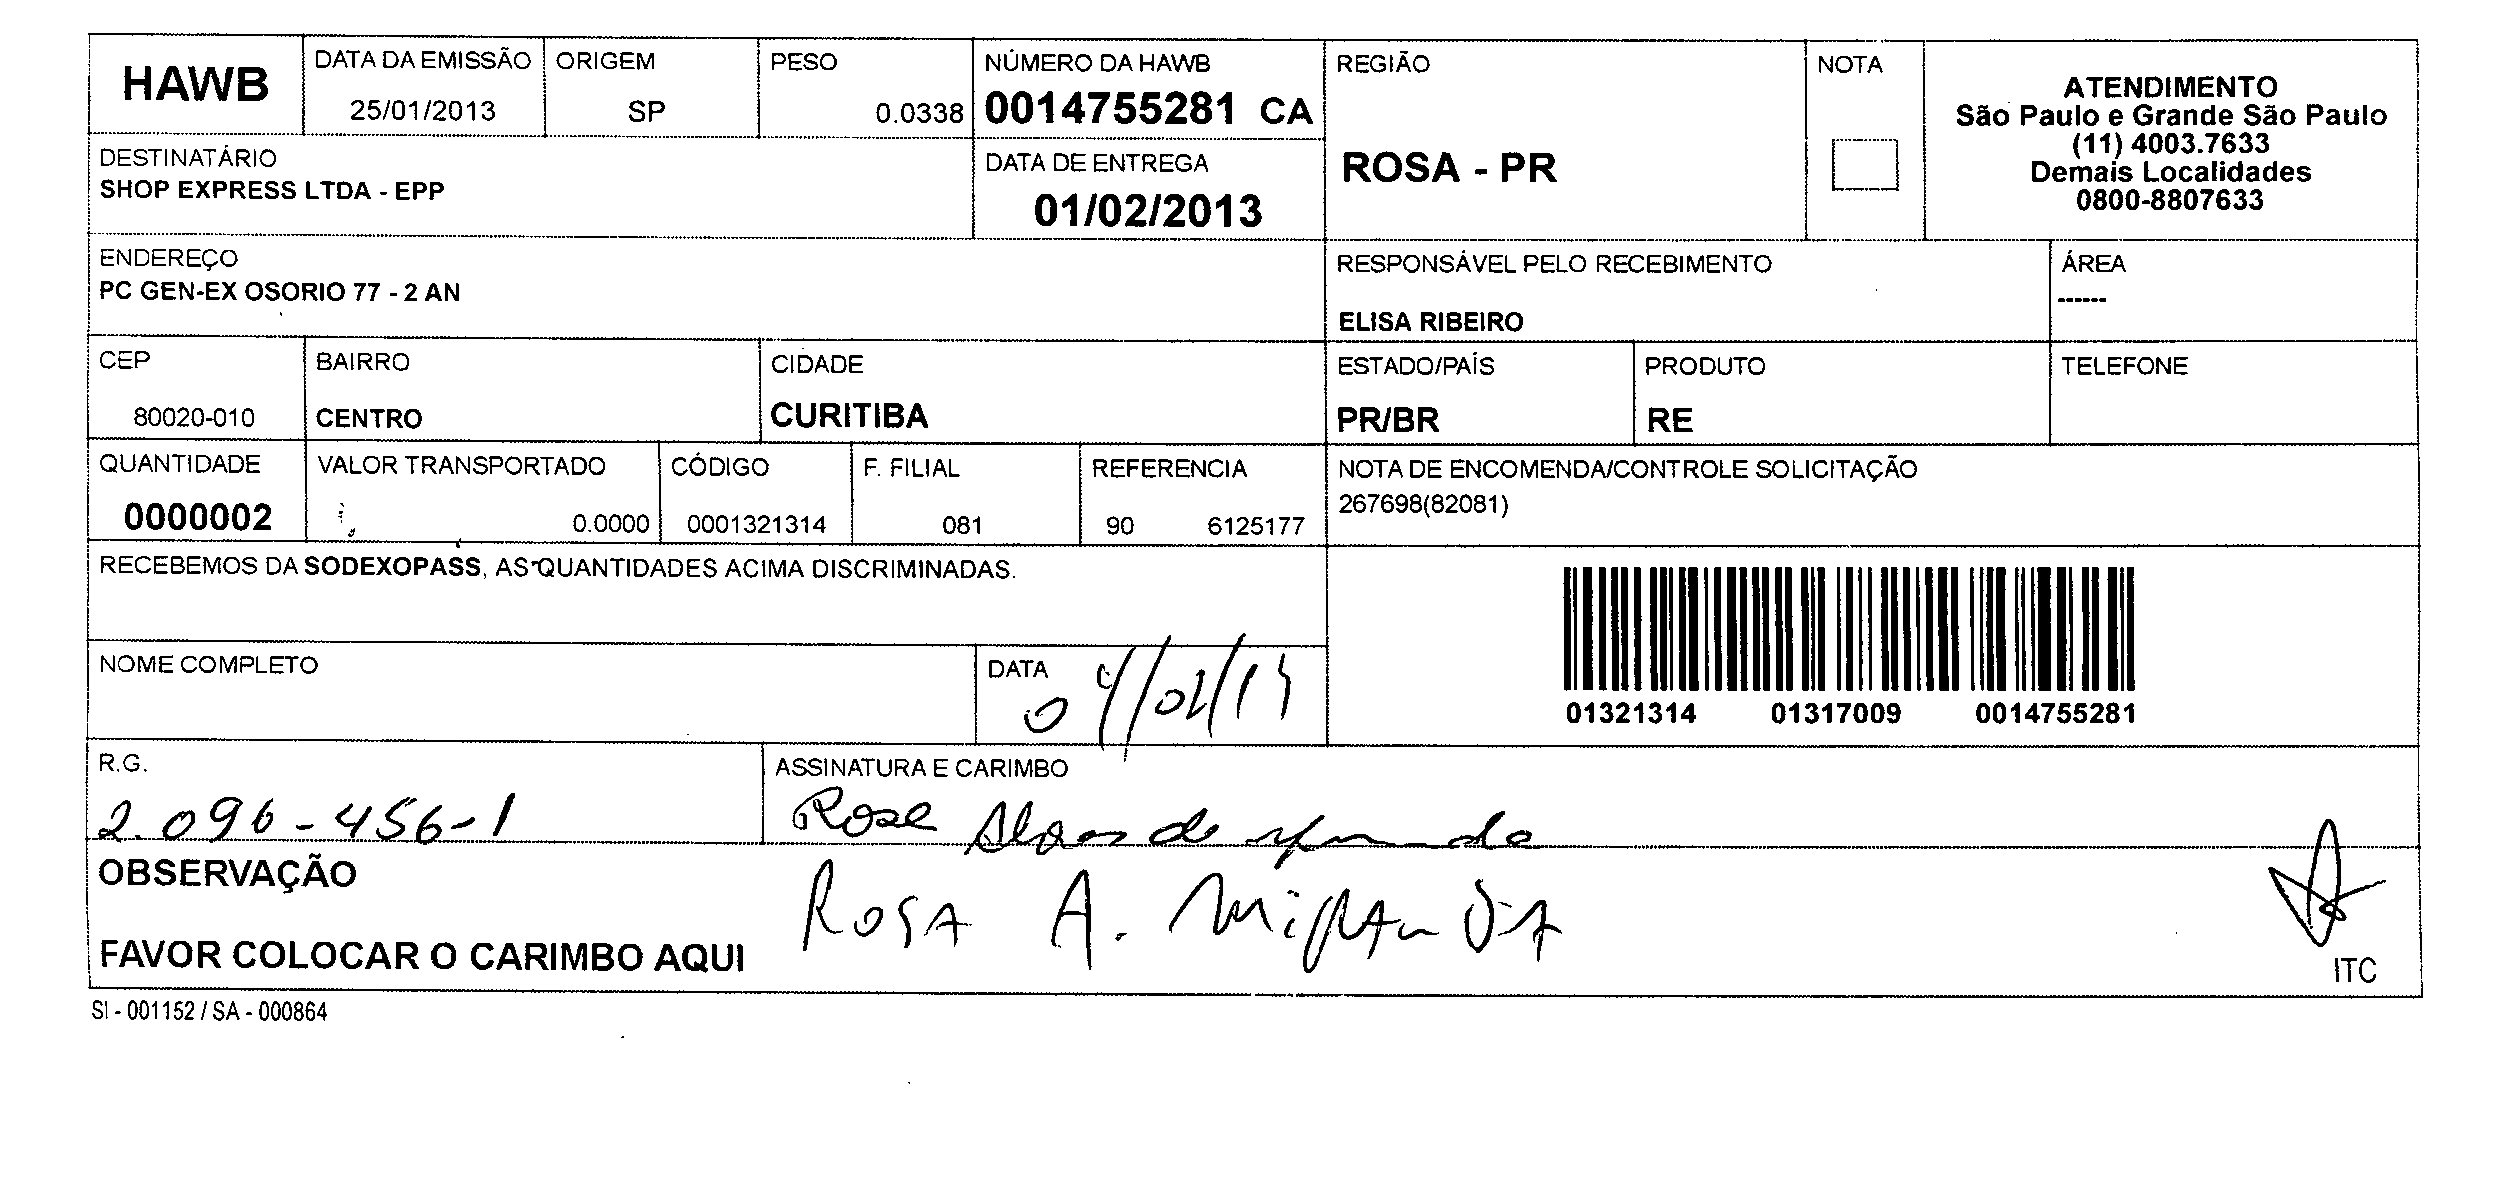 HAWB
DATA DA EMISSÃO
25/01/2013
ORIGEM
SP
PESO
0.0338
NÚMERO DA HAWB
0014755281 CA
REGIÃO
ROSA - PR
NOTA
ATENDIMENTO
São Paulo e Grande São Paulo
(11) 4003.7633
Demais Localidades
0800-8807633
DESTINATÁRIO
SHOP EXPRESS LTDA - EPP
DATA DE ENTREGA
01/02/2013
ENDEREÇO
PC GEN-EX OSORIO 77 - 2 AN
RESPONSÁVEL PELO RECEBIMENTO
ELISA RIBEIRO
ÁREA
------
CEP
80020-010
BAIRRO
CENTRO
CIDADE
CURITIBA
ESTADO/PAÍS
PR/BR
PRODUTO
RE
TELEFONE
QUANTIDADE
0000002
VALOR TRANSPORTADO
0.0000
CÓDIGO
0001321314
F. FILIAL
081
REFERENCIA
90 6125177
NOTA DE ENCOMENDA/CONTROLE SOLICITAÇÃO
267698(82081)
RECEBEMOS DA SODEXOPASS, AS QUANTIDADES ACIMA DISCRIMINADAS.
01321314 01317009 0014755281
NOME COMPLETO
DATA
R.G.
2.096-456-1
ASSINATURA E CARIMBO
Rosa
OBSERVAÇÃO
ROSA A. MIRANDA
FAVOR COLOCAR O CARIMBO AQUI
ITC
SI - 001152 / SA - 000864